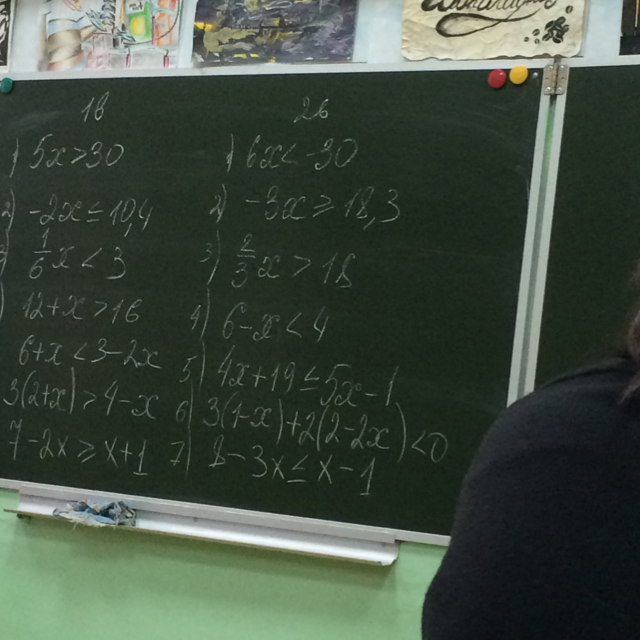 1в
1) 5x > 30
2) -2x ≤ 10,4
1/6 x < 3
12+x > 16
6+x < 3-2x
3(2+x) > 4-x
7-2x ≥ x+1
2в
1) 6x < -30
2) -3x ≥ 18,3
3) 2/3 x > 18
4) 6-x < 4
5) 4x+19 ≤ 5x-1
6) 3(1-x)+2(2-2x) < 0
7) 8-3x ≤ x-1